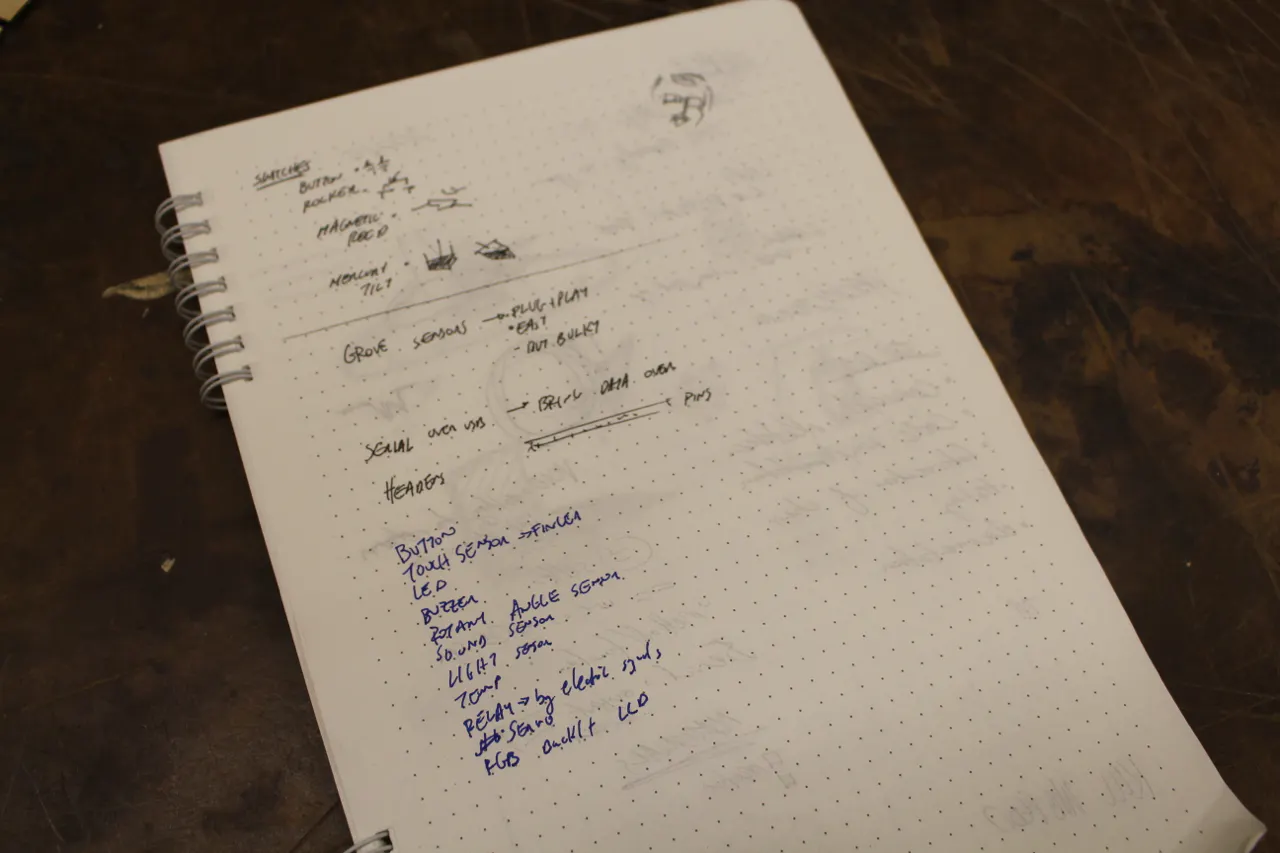 SWITCHES
BUTTON
ROCKER
MAGNETIC
REED
MERCURY
TILT
GROVE SENSORS → PLUG + PLAY
• EASY
- BUT BULKY
SERIAL OVER USB → BRING DATA OVER
HEADERS PINS
BUTTON
TOUCH SENSOR → FINGER
LED
BUZZER
ROTARY ANGLE SENSOR
SOUND SENSOR
LIGHT SENSOR
TEMP
RELAY → by electric signals
SERVO
RGB Backlit LCD